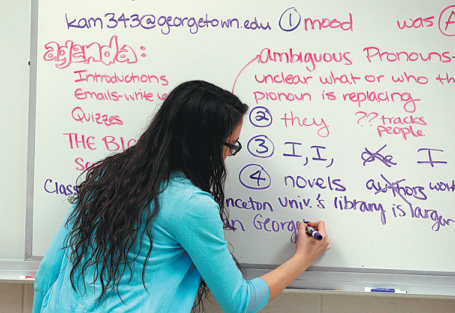 kam343@georgetown.edu ① mood was A
agenda:
Introductions
Emails-write
Quizzes
THE
Class
ambiguous Pronouns-
unclear what or who
pronoun is replacing.
② they ?? tracks
people
③ I, I, one I
④ novels authors
Univ.'s library is larger